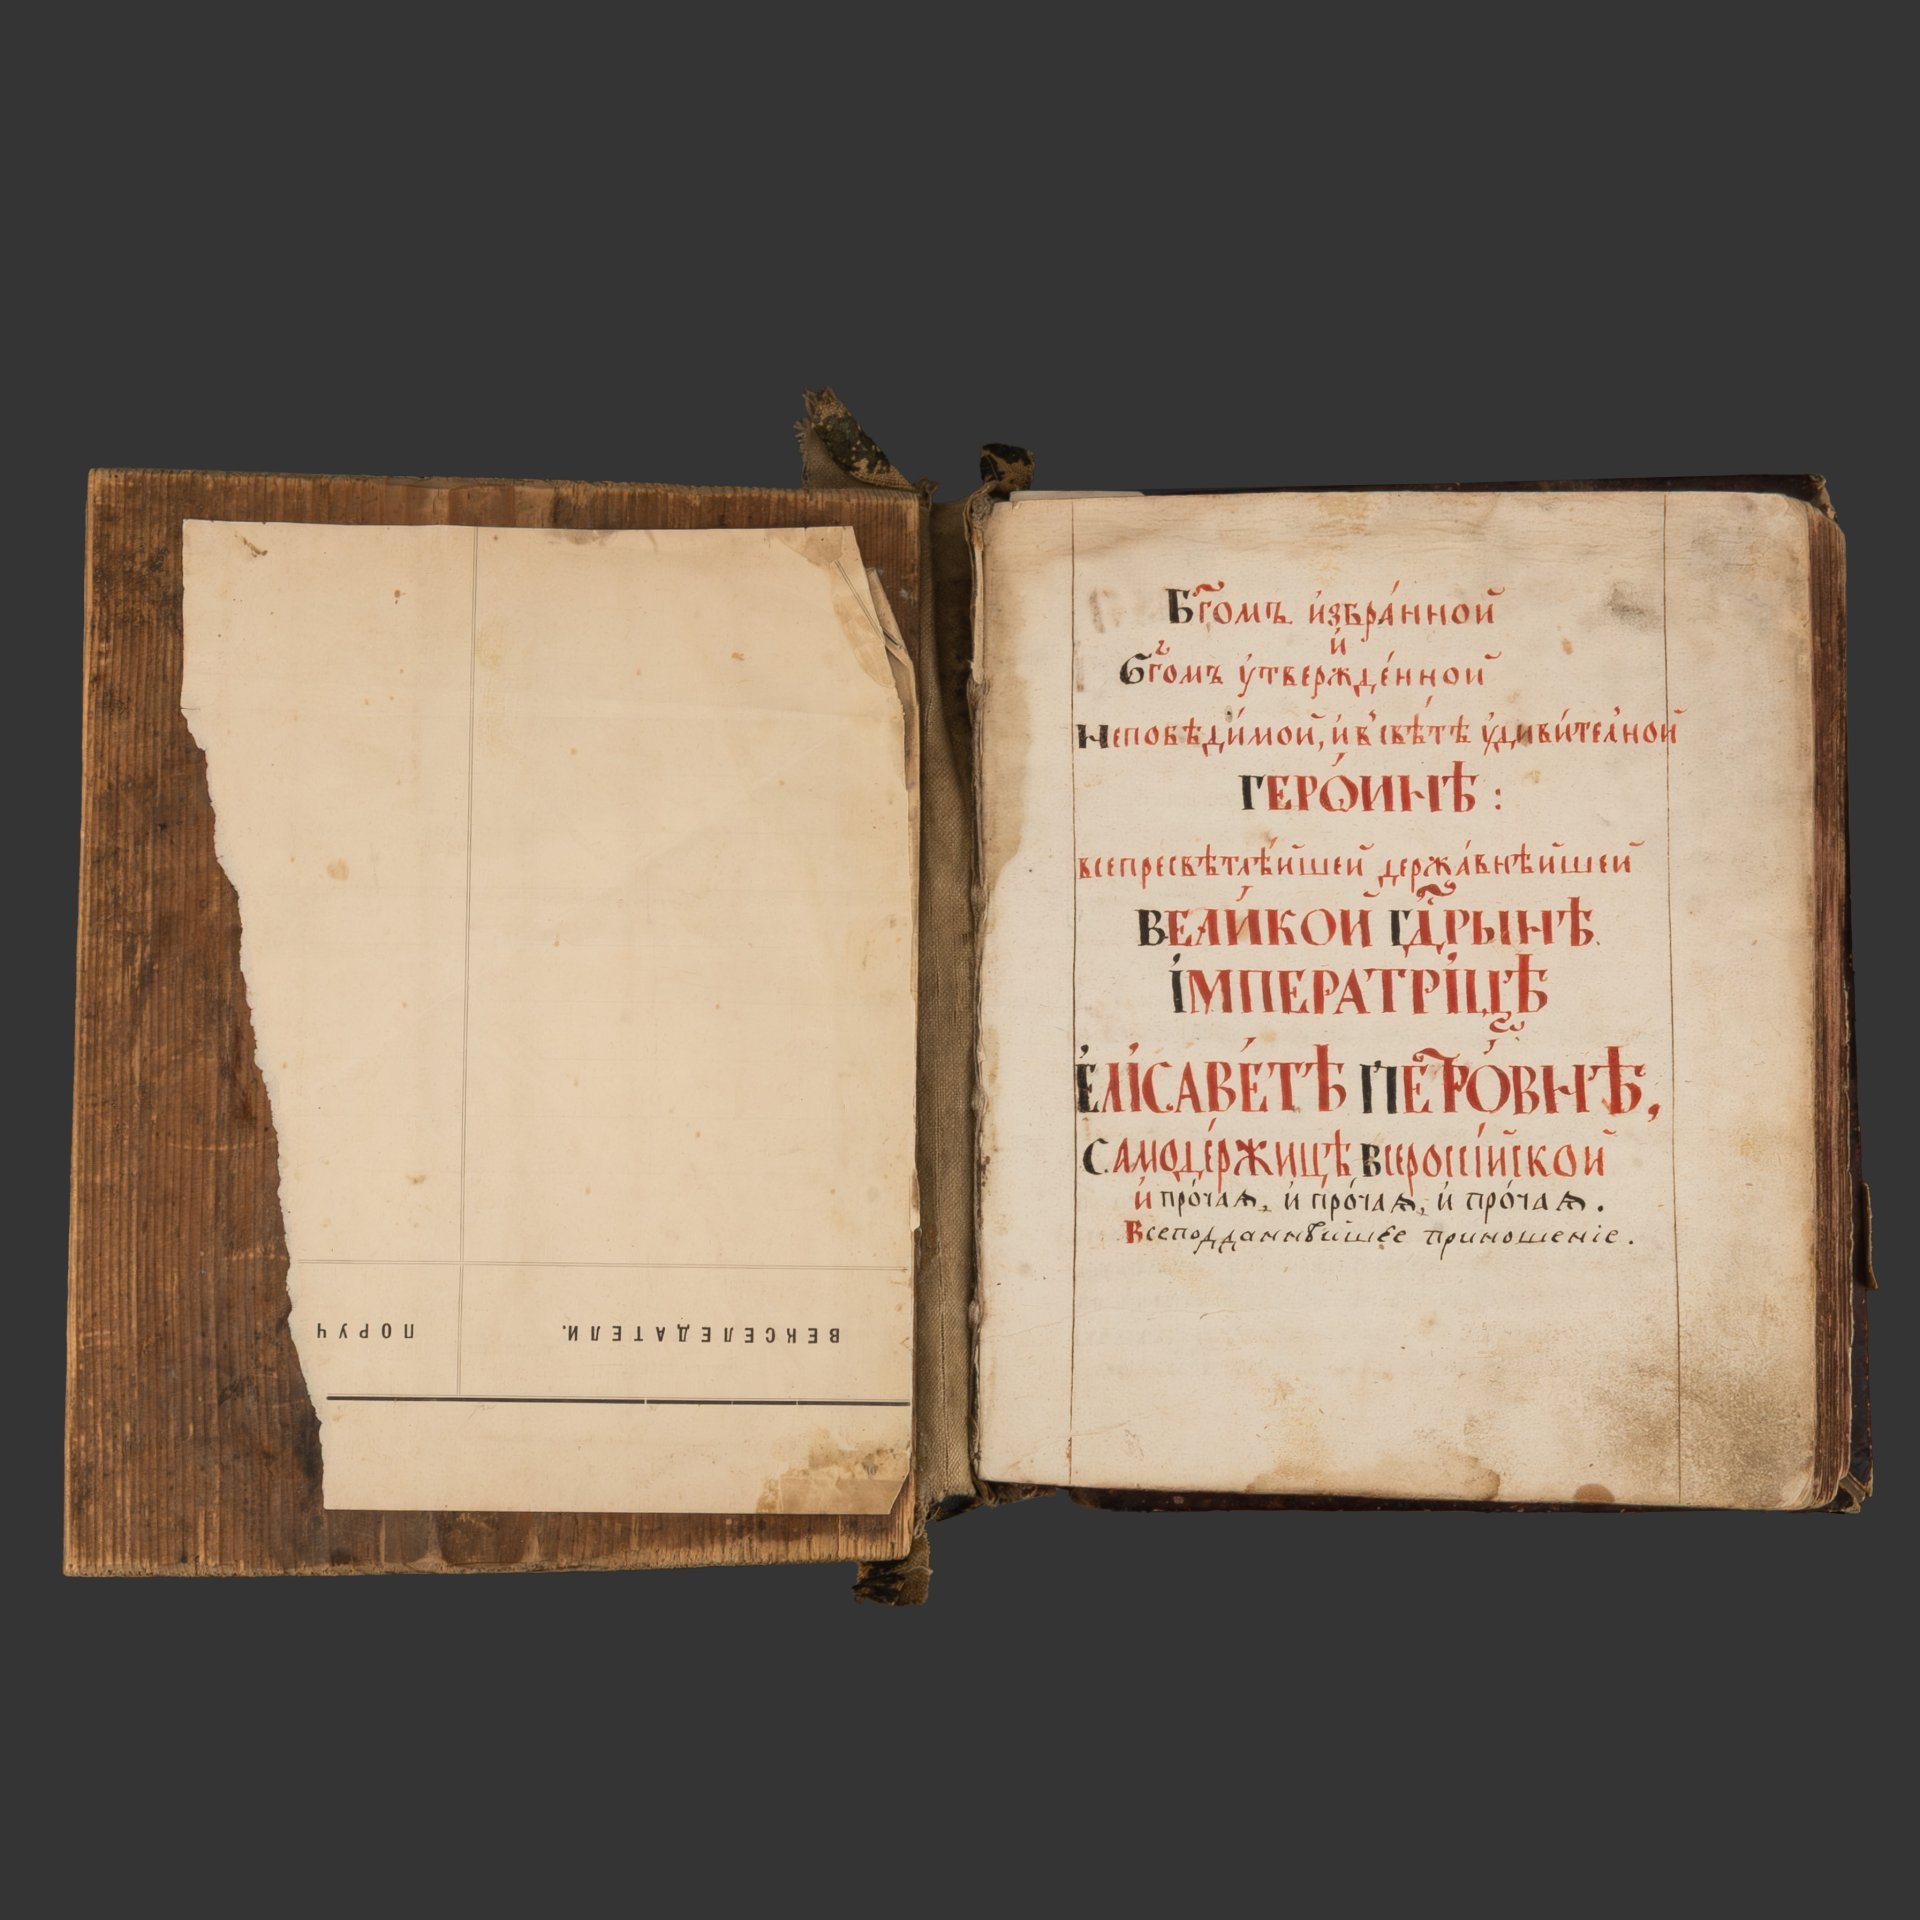 ВЕКСЕЛЕДАТЕЛИ. ПОРУЧ
Бг҃омъ и҆збра́нной
и҆
Бг҃омъ ᲂу҆твержде́нной
непобѣди́мой, и҆ в свѣ́тѣ ᲂу҆диви́телной
ГЕРѠ́ИНѢ :
всепресвѣтлѣ́йшей держа́внѣйшей
ВЕЛИ́КОЙ ГДⷭ҇РЫНѢ
І҆МПЕРАТРІ́ЦѢ
Е҆ЛІСАВЕ́ТѢ ПЕТРО́ВНѢ,
САМОДЕ́РЖИЦѢ Всеросі́йской
и҆ про́чаѧ, и҆ про́чаѧ, и҆ про́чаѧ.
Всеподданнѣйшее приношеніе.